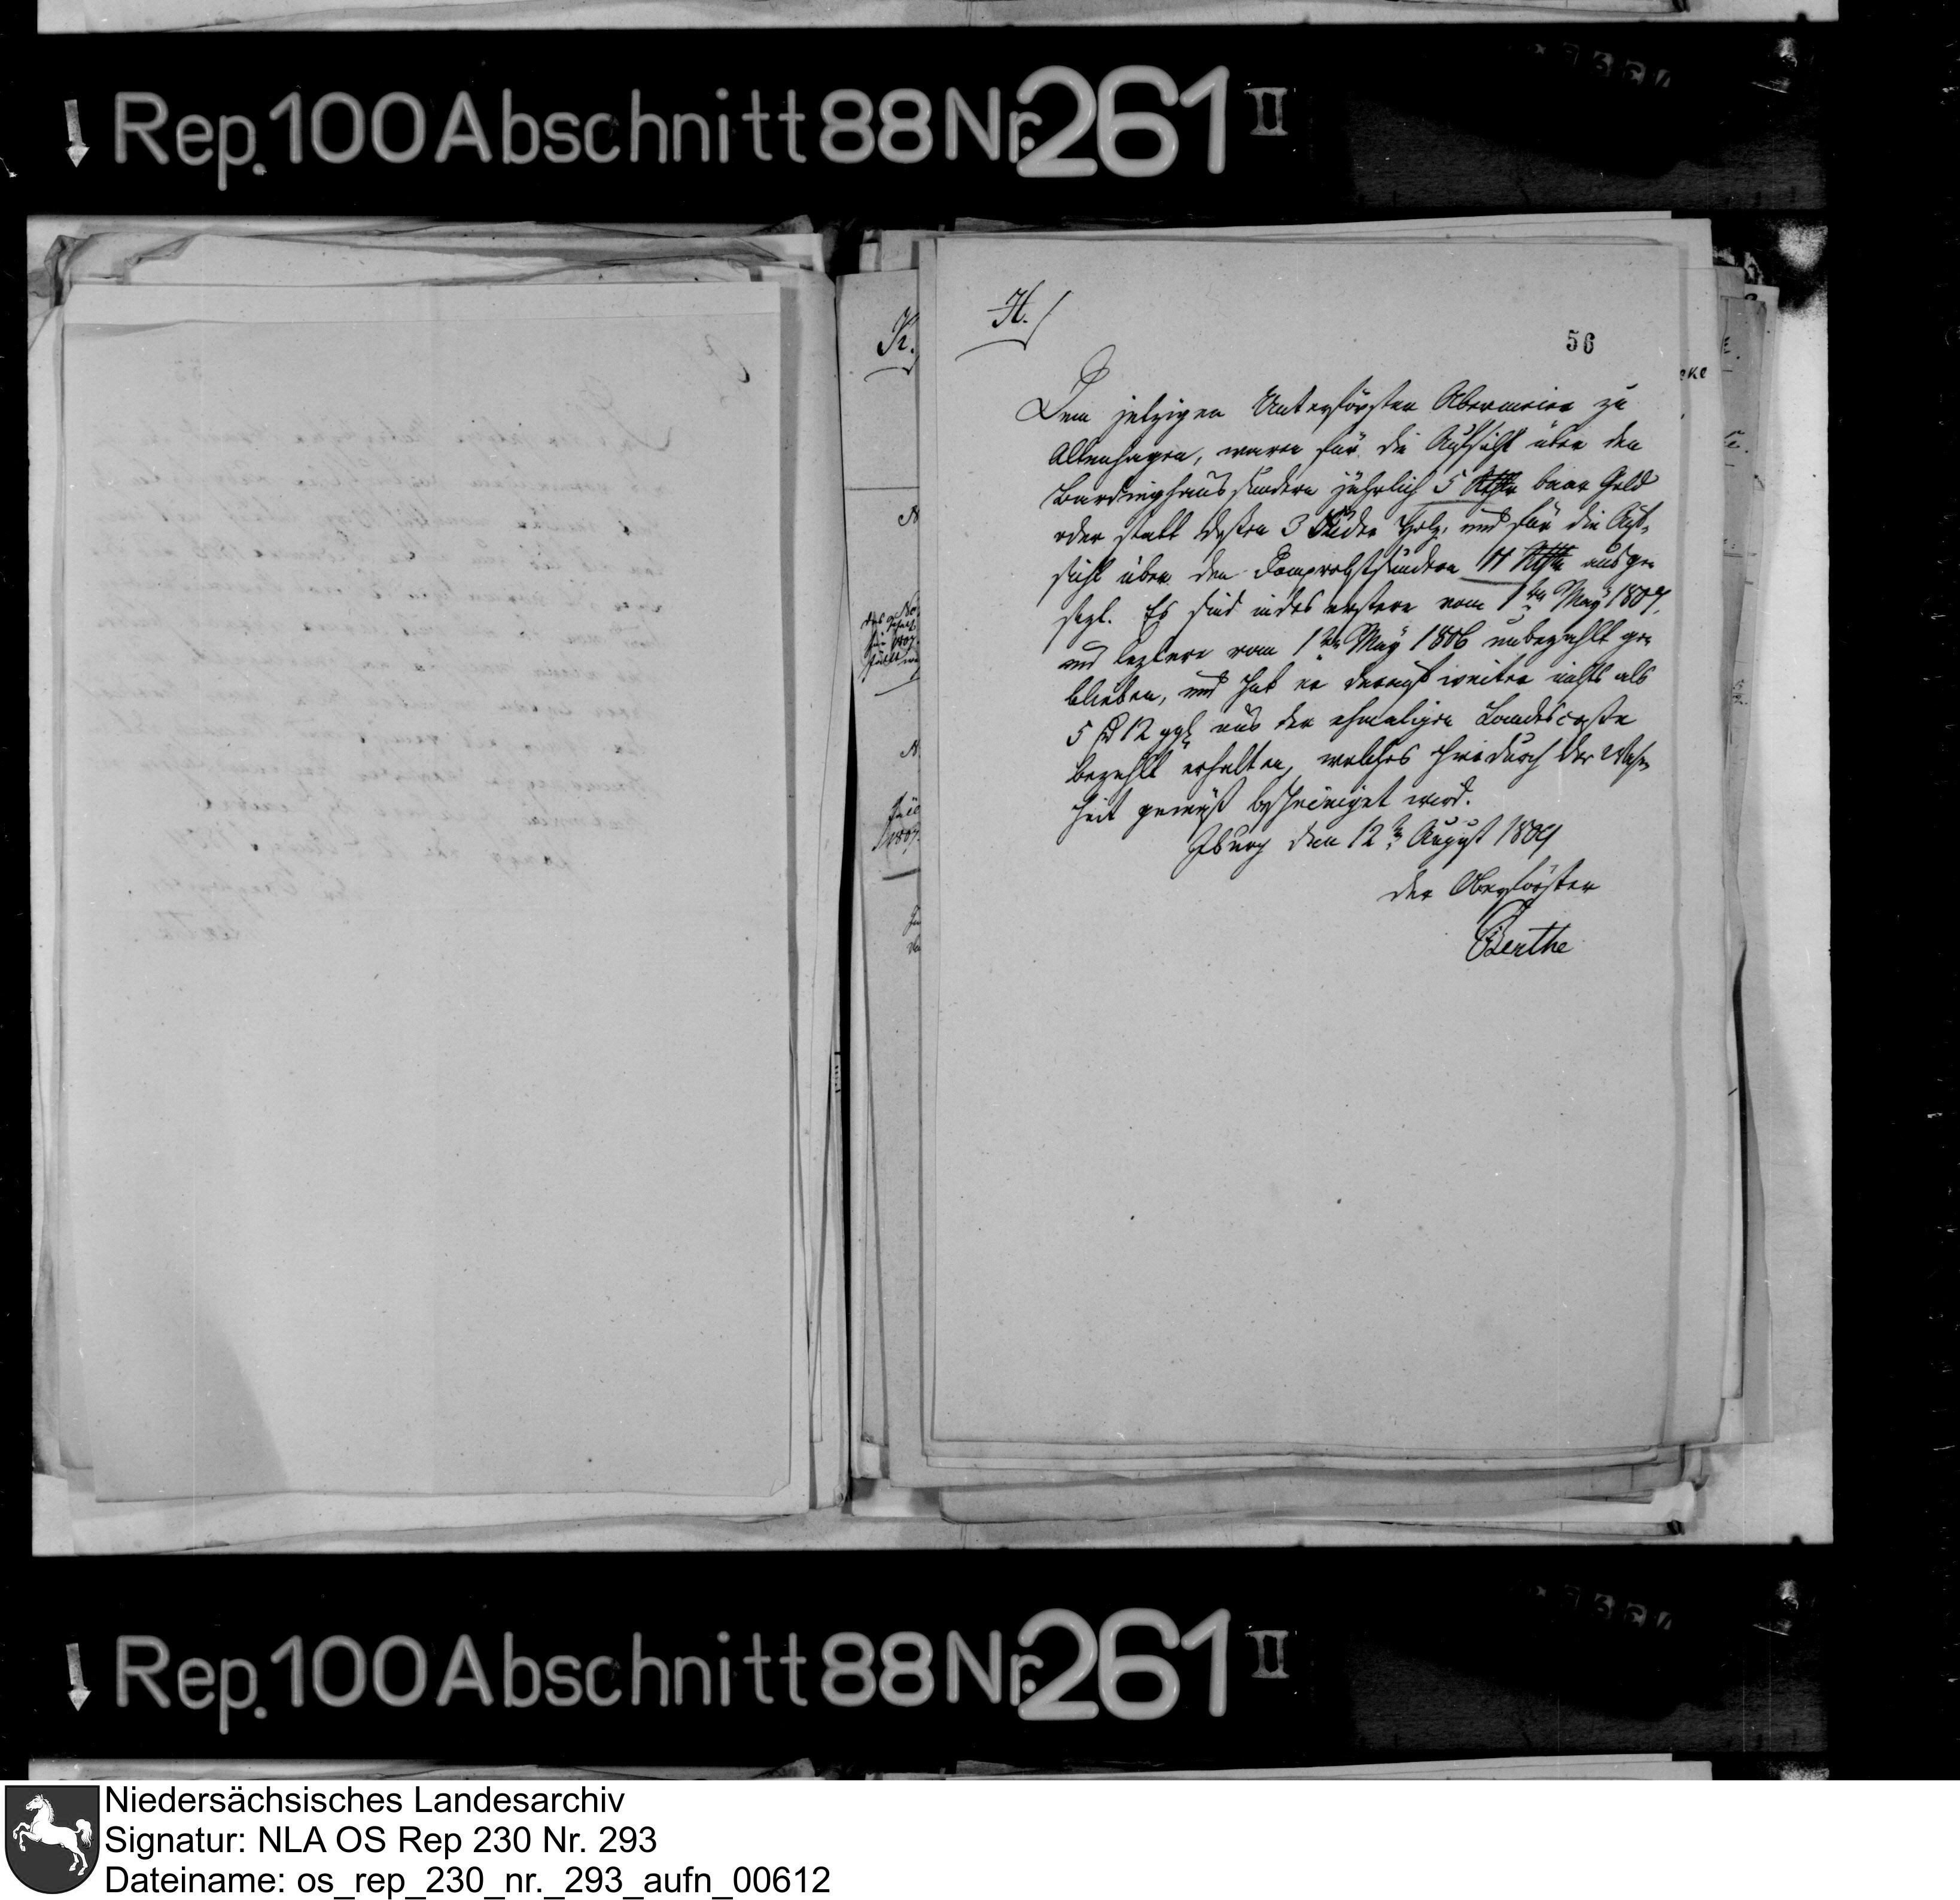 Rep. 100 Abschnitt 88 Nr. 261 II
H./
56
Dem jetzigen Unterförster Obermeier zu
Altenhagen, waren für die Aufsicht über den
Bardinghaussundern jährlich 5 Rthlr baar Geld
oder statt dessen 3 Fuder Holz, und für die Auf-
sicht über den Domprobstsundern 11 Rthlr ausge
sezt. Es sind indes erstere vom 1ten May 1807,
und leztere vom 1ten May 1806 unbezahlt ge
blieben, und hat er darauf weiter nichts als
5 rt 12 ggl aus der ehmaligen Landescasse
bezahlt erhalten, welches hiedurch der Wahr
heit gemäß bescheiniget wird.
Iburg den 12ten August 1809
der Oberförster
Berthe
K.
Rep. 100 Abschnitt 88 Nr. 261 II
Niedersächsisches Landesarchiv
Signatur: NLA OS Rep 230 Nr. 293
Dateiname: os_rep_230_nr._293_aufn_00612